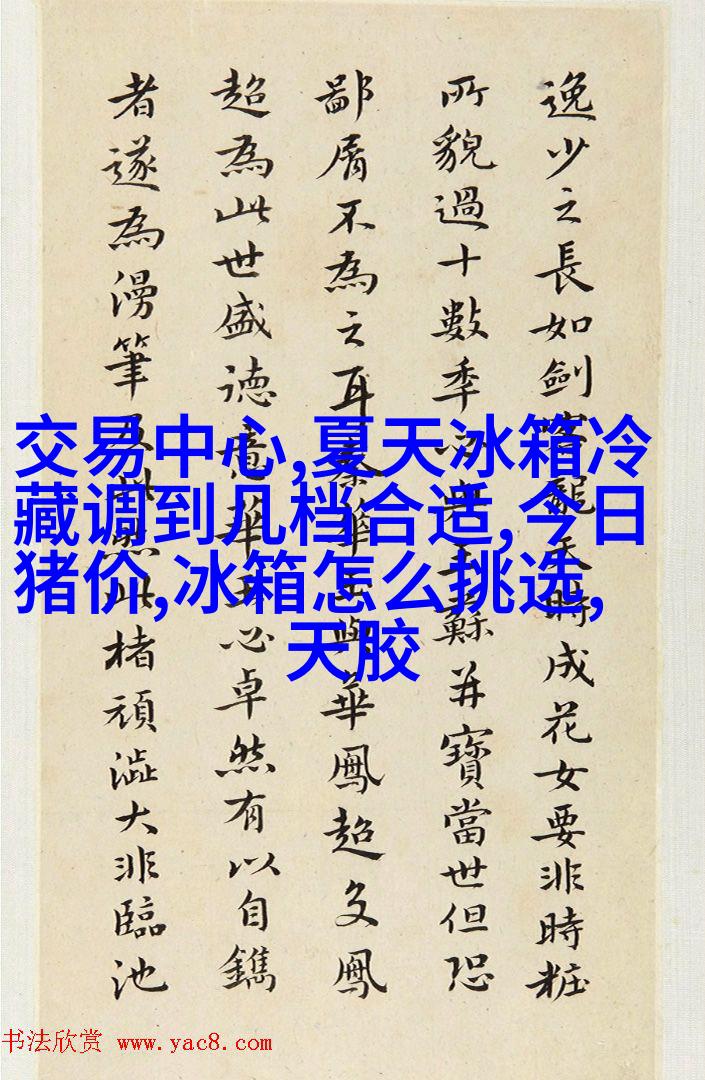 逸少之長如劍成花女要非時粧
所貌過十數季蘇并寶當世但恐
鄙屑不為之耳與華鳳超多鳳
超為此世盛德心卓然有以自鐫
者遂為漫筆此楮頑澁大非臨池
交易中心,夏天冰箱冷
藏调到几档合适,今日
猪价,冰箱怎么挑选,
天胶
书法欣赏 www.yac8.com